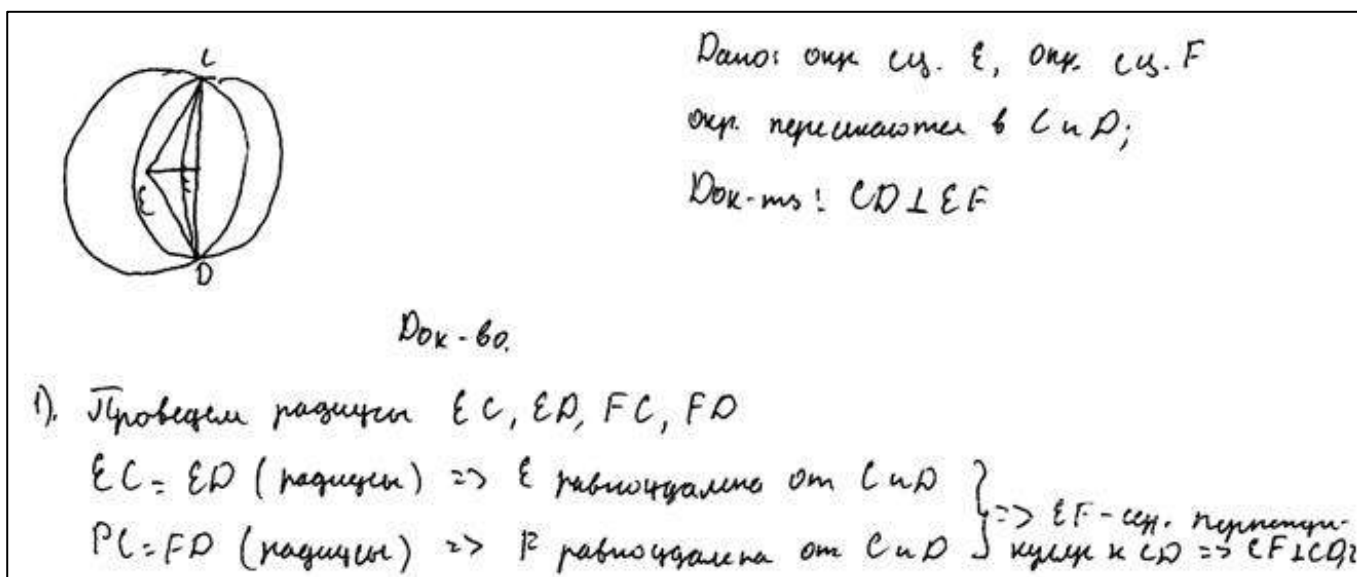 C
E
F
D
Дано: окр. с ц. E, окр. с ц. F
окр. пересекаются в C и D;
Док-ть: CD ⊥ EF
Док-во.
1). Проведем радиусы EC, ED, FC, FD
EC = ED (радиусы) => E равноудалена от C и D
FC = FD (радиусы) => F равноудалена от C и D
=> EF - сер. перпенди-
куляр к CD => EF ⊥ CD